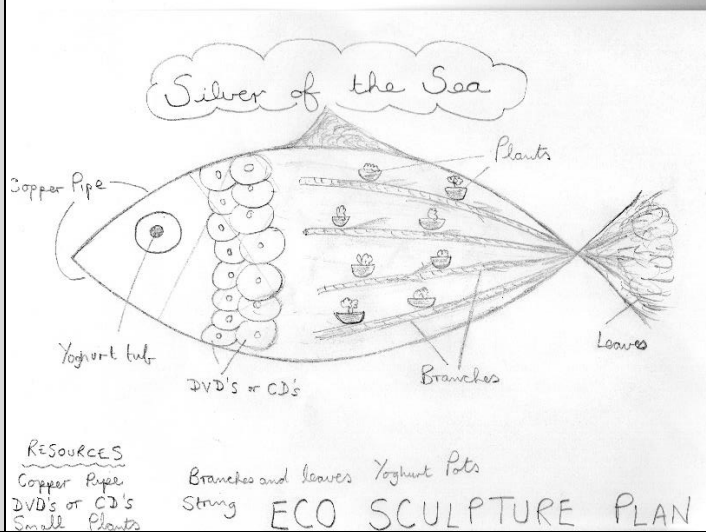 Silver of the Sea
Plants
Copper Pipe
Yoghurt tub
DVD's or CD's
Branches
Leaves
RESOURCES
Copper Pipe
DVD's or CD's
Small Plants
Branches and leaves
String
Yoghurt Pots
ECO SCULPTURE PLAN